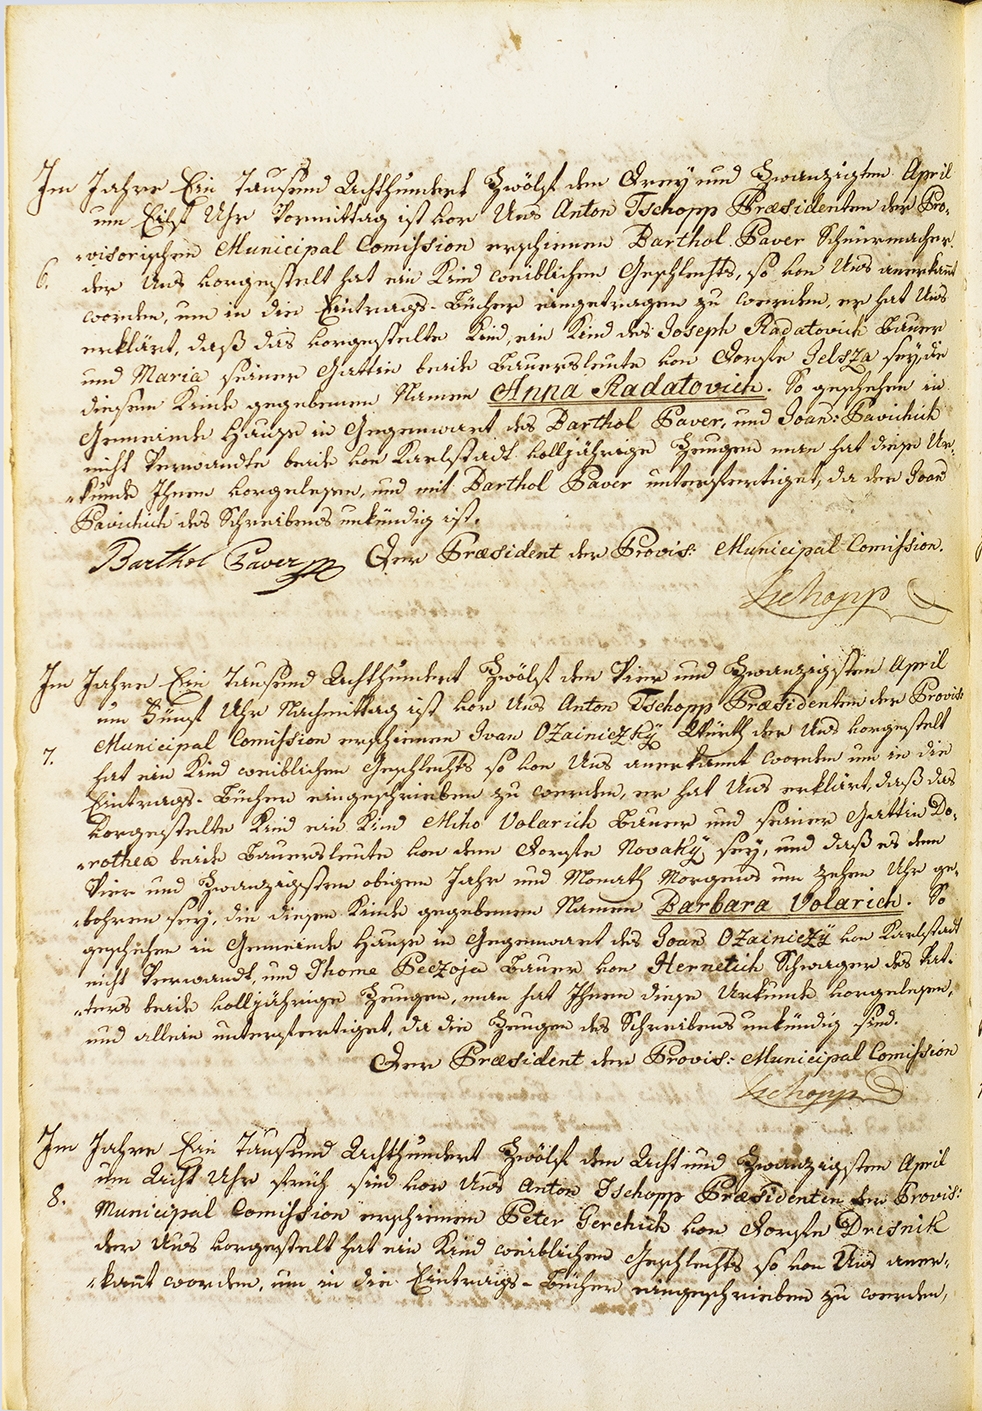 Im Jahre Ein Tausend Achthundert Zwölf den Drey und Zwanzigsten April
um Eilf Uhr Vormittag ist vor Uns Anton Tschopp Præsidenten der Pro-
-visorischen Municipal Comission erschienen Barthol. Paver Schnürmacher
6. der Uns vorgestelt hat ein Kind weiblichen Geschlechts, so von Uns anerkant
worden, um in die Eintrags-Bücher eingetragen zu werden, er hat Uns
erklärt, daß das vorgestelte Kind, ein Kind des Joseph Radatovich Bauer
und Maria seiner Gattin beide Bauersleute von Dorfe Jelsza sey, die
diesem Kinde gegebenen Namen Anna Radatovich. So geschehen in
Gemeinde Hause in Gegenwart des Barthol Paver, und Joan: Pavichich
nicht Verwandte beide von Karlstadt volljährige Zeugen man hat diese Ur-
-kunde Ihnen vorgelesen, und mit Barthol Paver unterfertiget, da der Joan
Pavichich des Schreibens unkündig ist.
Barthol Paver Der Præsident der Provis: Municipal Comission.
Tschopp
Im Jahre Ein Tausend Achthundert Zwölf den Vier und Zwanzigsten April
um Fünf Uhr Nachmittag ist vor Uns Anton Tschopp Præsidenten der Provis:
7. Municipal Comission erschienen Ivan Ožainiczkÿ Würth der Uns vorgestelt
hat ein Kind weiblichen Geschlechts so von Uns anerkannt worden um in die
Eintrags-Bücher eingeschrieben zu werden, er hat Uns erklärt, daß das
vorgestelte Kind ein Kind Miho Volarich Bauer und seiner Gattin Do-
-rothea beide Bauersleute von dem Dorfe Novakÿ sey, und daß es dem
Vier und Zwanzigsten obigen Jahr und Monath Morgens um zehen Uhr ge-
-bohren sey, die diesem Kinde gegebenen Namen Barbara Volarich. So
geschehen in Gemeinde Hause in Gegenwart des Joan Ožainiczÿ von Karlstadt
nicht Verwandt, und Thome Peczoja Bauer von Hernetich Schwager des Vat-
-ters beide volljährige Zeugen, man hat Ihnen diese Urkunde vorgelesen,
und allein unterfertiget, da die Zeugen des Schreibens unkündig sind.
Der Præsident der Provis: Municipal Comission
Tschopp
Im Jahre Ein Tausend Achthundert Zwölf den Acht und Zwanzigsten April
um Acht Uhr früh sind vor Uns Anton Tschopp Præsidenten der Provis:
8. Municipal Comission erschienen Peter Gerchich von Dorfe Dresnik
der Uns vorgestelt hat ein Kind weiblichen Geschlechts so von Uns aner-
-kant worden, um in die Eintrags-Bücher eingeschrieben zu werden,